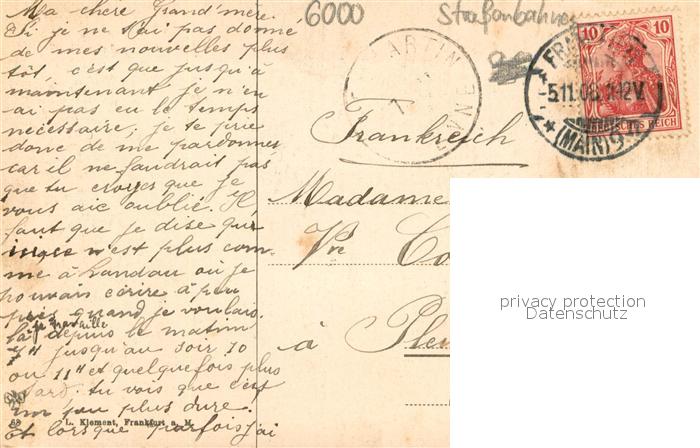 Ma chère Grand'mère
Si je ne t'ai pas donné
de mes nouvelles plus
tôt, c'est que jusqu'à
maintenant je n'en
ai pas eu le temps
nécessaire, je te prie
donc de me pardonner
car il ne faudrait pas
que tu croyes que je
vous aie oublié. Il
faut que je dise que
n'est plus com-
me à Landau où je
pouvais écrire à peu
près quand je voulais.
là je travaille depuis le matin
7 H jusqu'au soir 10
ou 11 H et quelquefois plus
tard. tu vois que c'est
un peu plus dure.
et lorsque parfois j'ai
88 L. Klement, Frankfurt a. M.
6000 Straßenbahnen
MARTIN
FRA
5.11.08. 11-12V.
(MAIN) 9
10 10
DEUTSCHES REICH
Frankreich
Madame
Vve Co
à Ple
privacy protection
Datenschutz